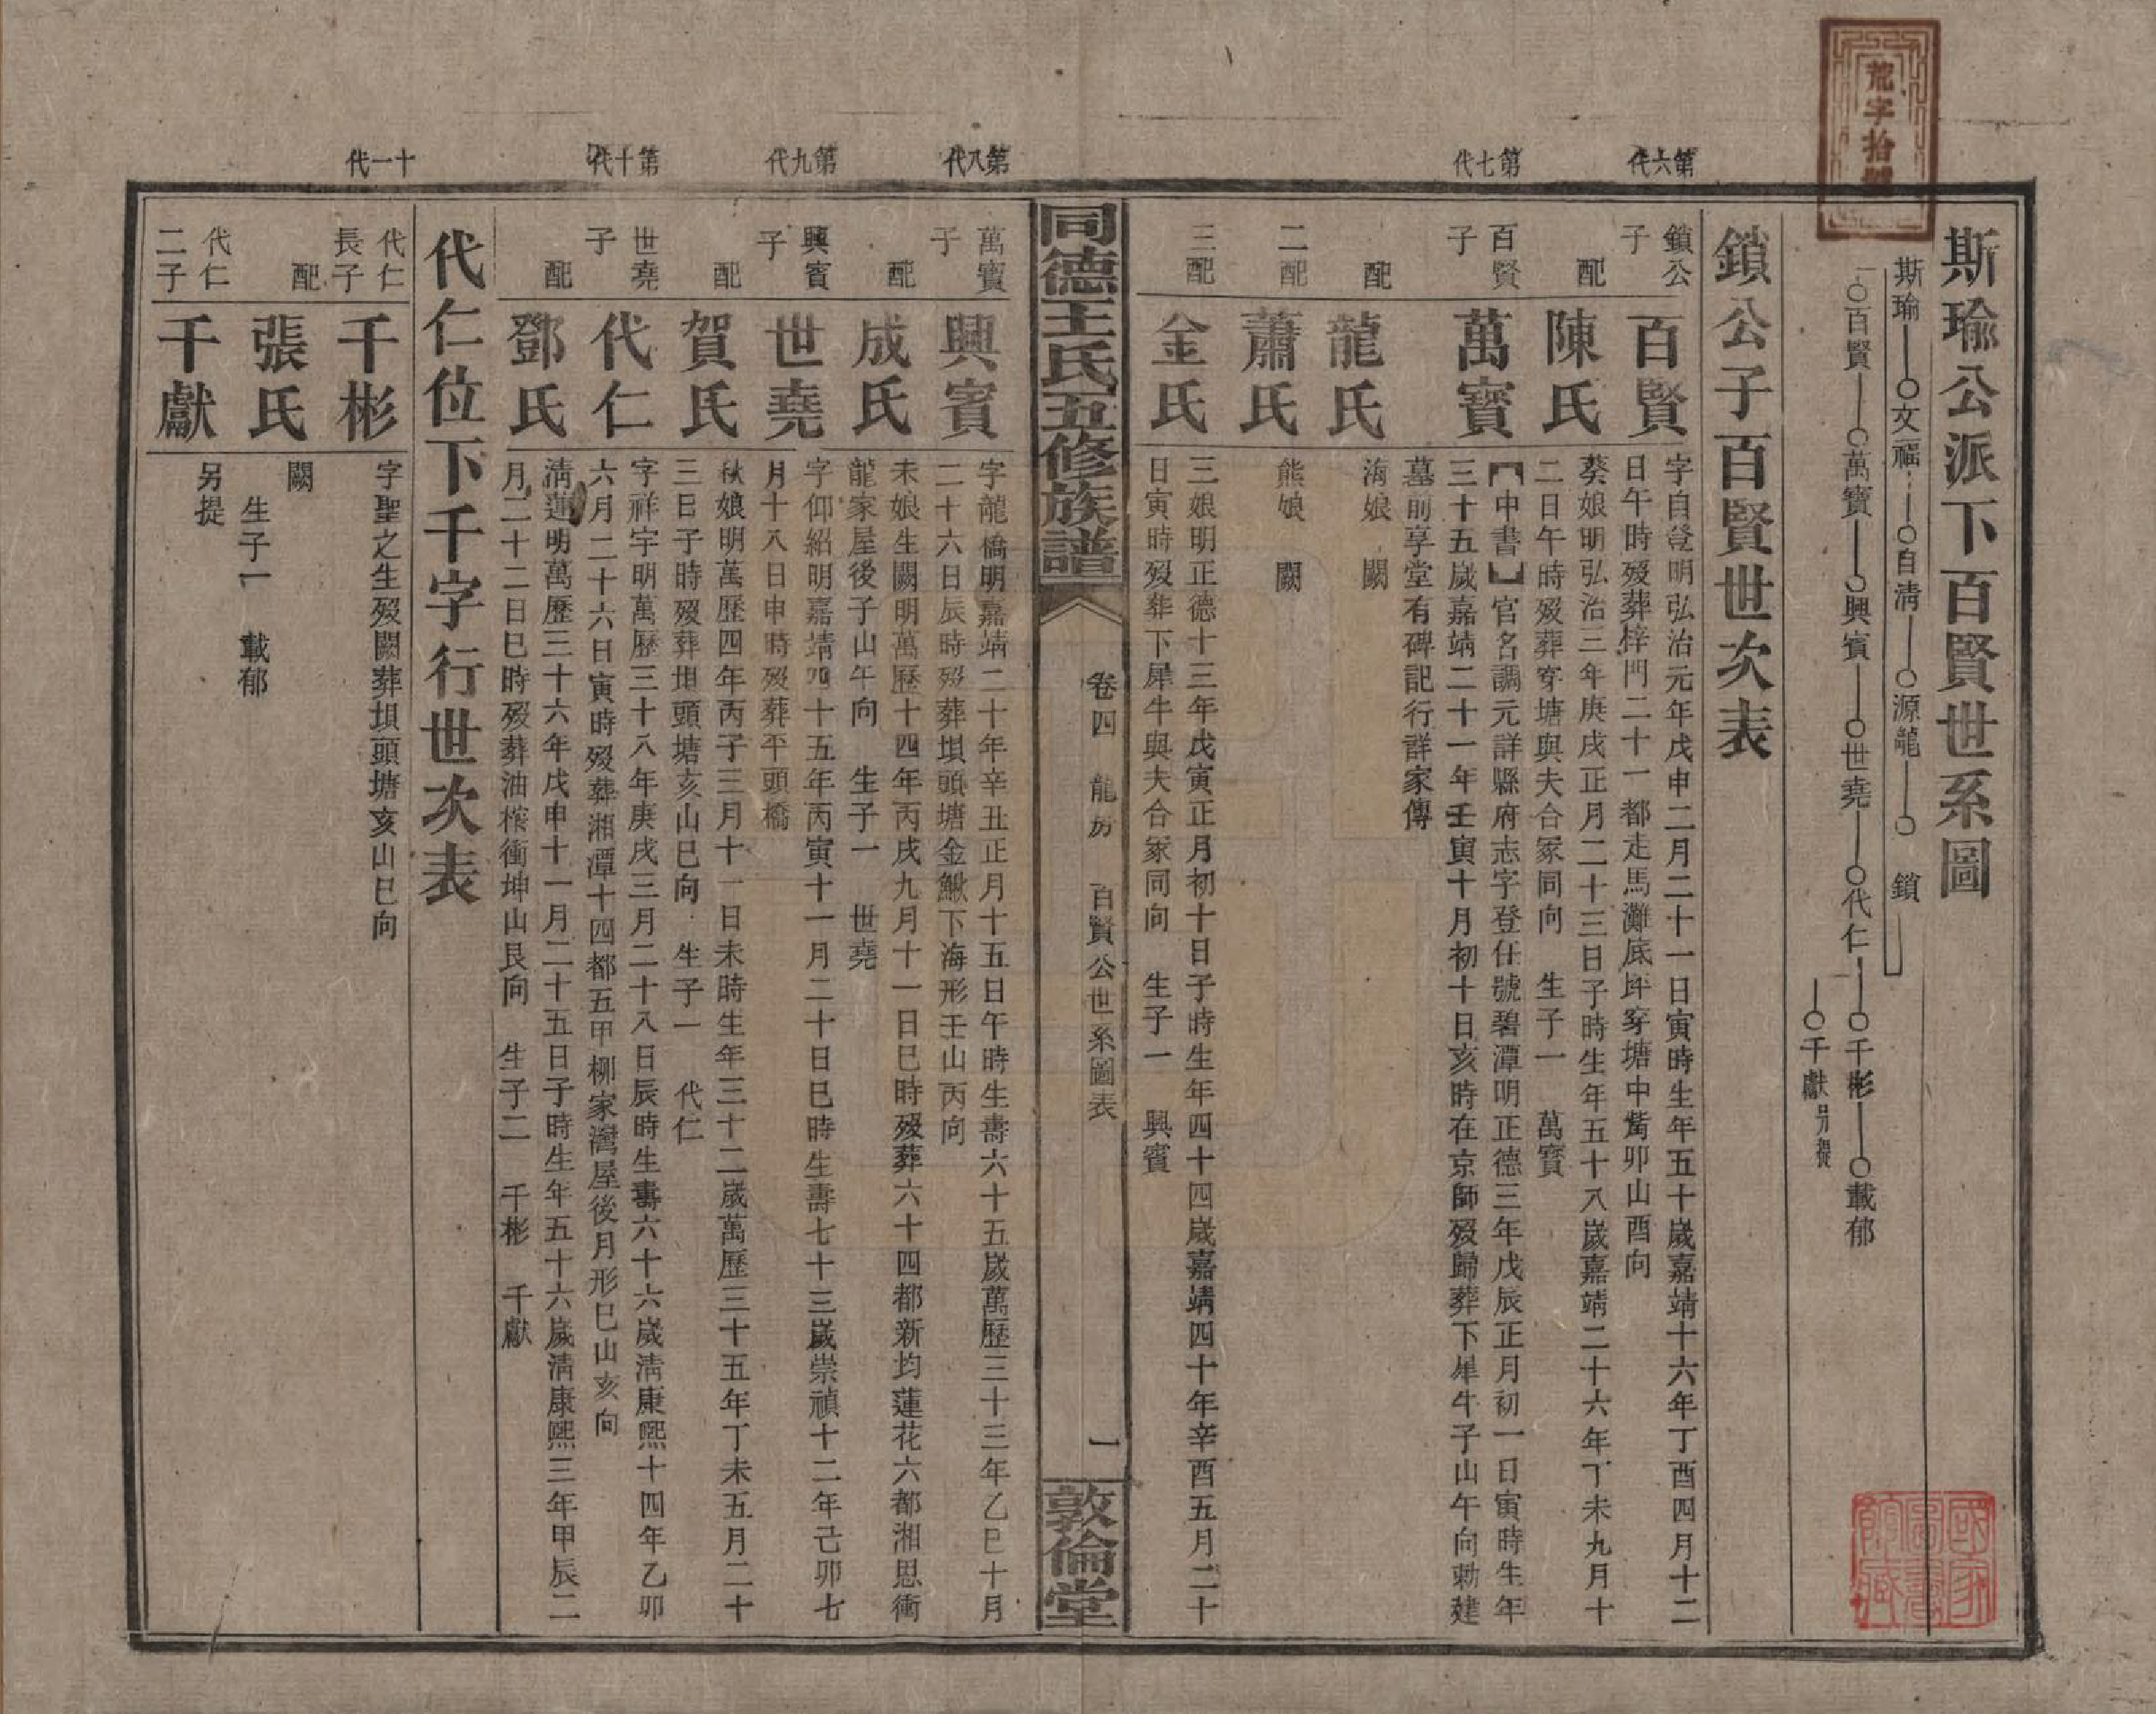 斯瑜公派下百賢世系圖
斯瑜 文福 自清 源龍 鎖
百賢 萬寶 興賓 世堯 代仁 千彬 載郁
千獻 另提
鎖公子百賢世次表
第六代
鎖公子 百賢 字自登明弘治元年戊申二月二十一日寅時生年五十歲嘉靖十六年丁酉四月十二
日午時歿葬梓門二十一都走馬灘底坪穿塘中嘴卯山酉向
配 陳氏 葵娘明弘治三年庚戌正月二十三日子時生年五十八歲嘉靖二十六年丁未九月十
二日午時歿葬穿塘與夫合冢同向 生子一 萬寶
第七代
百賢子 萬寶 【中書】官名調元詳縣府志字登仕號碧潭明正德三年戊辰正月初一日寅時生年
三十五歲嘉靖二十一年壬寅十月初十日亥時在京師歿歸葬下犀牛子山午向勅建
墓前享堂有碑記行詳家傳
配 龍氏 淯娘 闕
二配 蕭氏 熊娘 闕
三配 金氏 三娘明正德十三年戊寅正月初十日子時生年四十四歲嘉靖四十年辛酉五月二十
日寅時歿葬下犀牛與夫合冢同向 生子一 興賓
同德王氏五修族譜 卷四 龍房 百賢公世系圖表 一 敦倫堂
第八代
萬寶子 興賓 字龍橋明嘉靖二十年辛丑正月十五日午時生壽六十五歲萬歷三十三年乙巳十月
二十六日辰時歿葬垻頭塘金鰍下海形壬山丙向
配 成氏 未娘生闕明萬歷十四年丙戌九月十一日巳時歿葬六十四都新均蓮花六都湘思衝
龍家屋後子山午向 生子一 世堯
第九代
興賓子 世堯 字仰紹明嘉靖四十五年丙寅十一月二十日巳時生壽七十三歲崇禎十二年己卯七
月十八日申時歿葬平頭橋
配 賀氏 秋娘明萬歷四年丙子三月十一日未時生年三十二歲萬歷三十五年丁未五月二十
三日子時歿葬垻頭塘亥山巳向 生子一 代仁
第十代
世堯子 代仁 字祥宇明萬歷三十八年庚戌三月二十八日辰時生壽六十六歲清康熙十四年乙卯
六月二十六日寅時歿葬湘潭十四都五甲柳家灣屋後月形巳山亥向
配 鄧氏 清蓮明萬歷三十六年戊申十一月二十五日子時生年五十六歲清康熙三年甲辰二
月二十二日巳時歿葬油榨衝坤山艮向 生子二 千彬 千獻
代仁位下千字行世次表
十一代
代仁長子 千彬 字聖之生歿闕葬垻頭塘亥山巳向
配 張氏 闕
生子一 載郁
代仁二子 千獻 另提
荒字拾號
國家圖書館藏